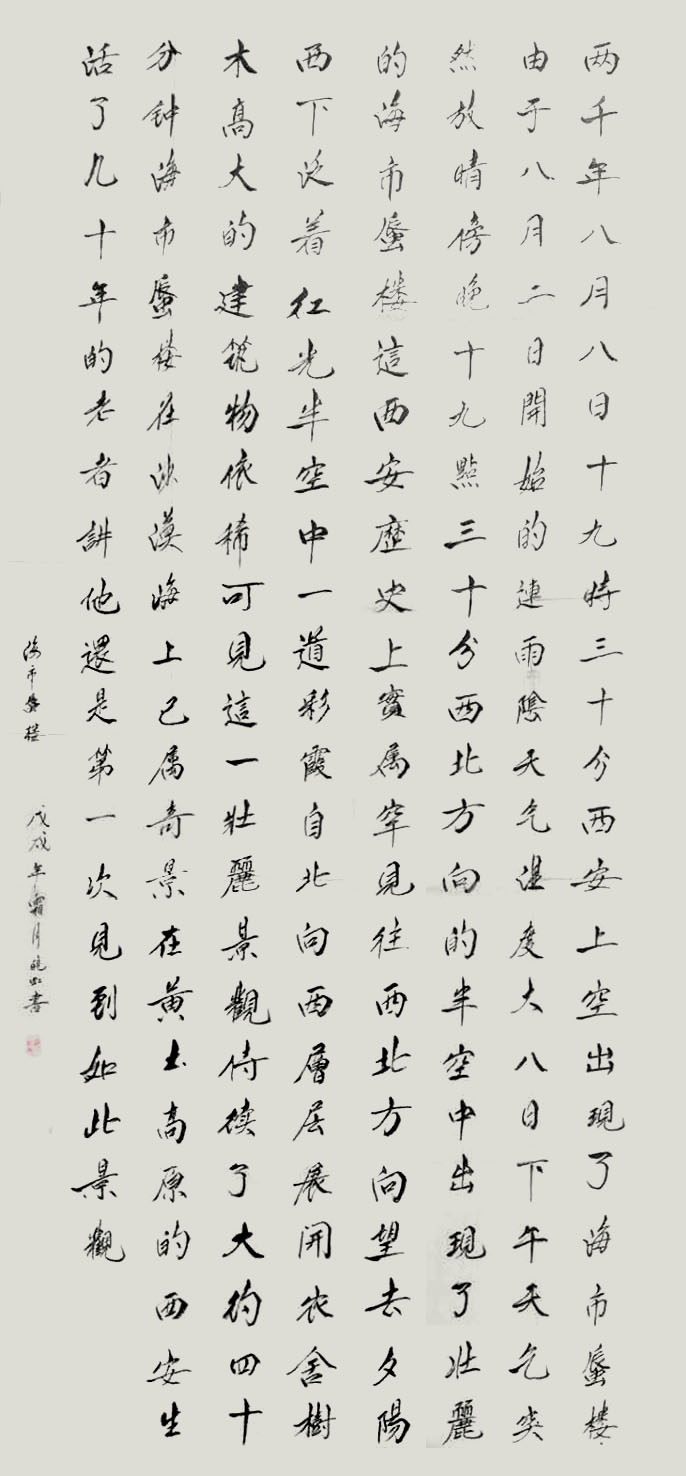 两千年八月八日十九时三十分西安上空出現了海市蜃楼
由于八月二日開始的連雨陰天气湿度大八日下午天气突
然放晴傍晚十九點三十分西北方向的半空中出現了壮麗
的海市蜃楼這西安歷史上實属罕見往西北方向望去夕陽
西下泛着红光半空中一道彩霞自北向西層层展開农舍樹
木高大的建筑物依稀可見這一壮麗景觀持续了大约四十
分钟海市蜃楼在沙漠海上已属奇景在黄土高原的西安生
活了几十年的老者讲他還是第一次見到如此景觀
海市蜃楼 戊戌年霜月晓虹書